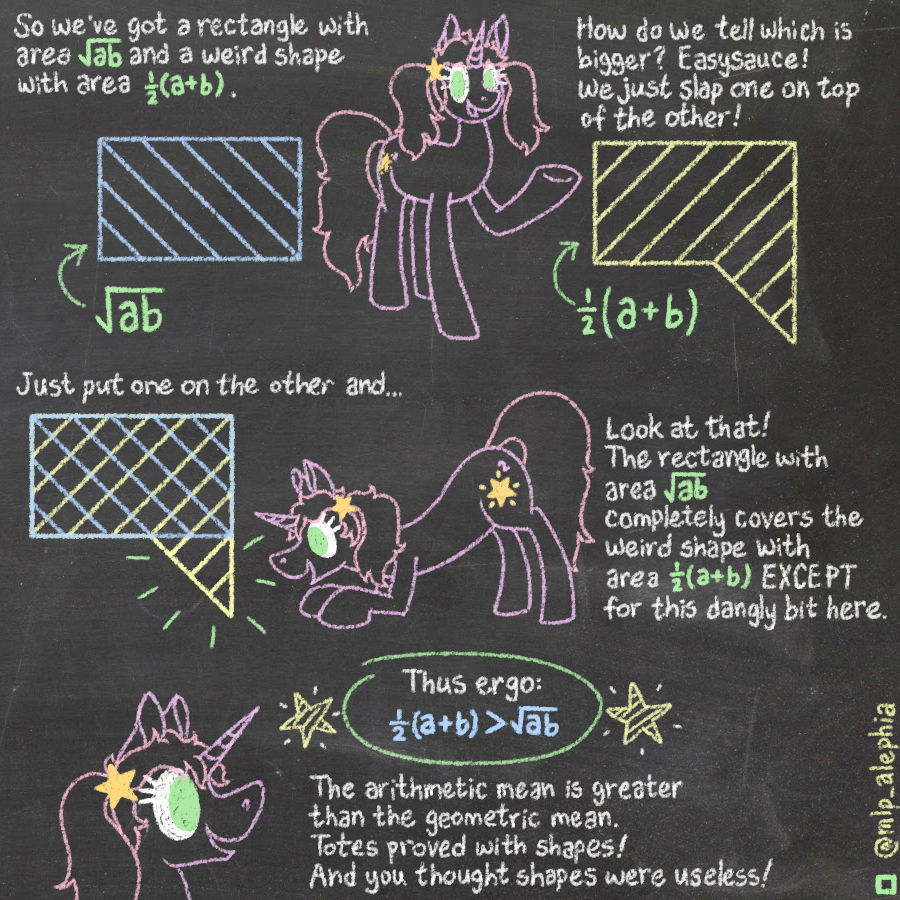 So we've got a rectangle with
area √ab and a weird shape
with area ½(a+b).
How do we tell which is
bigger? Easysauce!
We just slap one on top
of the other!
√ab
½(a+b)
Just put one on the other and...
Look at that!
The rectangle with
area √ab
completely covers the
weird shape with
area ½(a+b) EXCEPT
for this dangly bit here.
Thus ergo:
½(a+b) > √ab
The arithmetic mean is greater
than the geometric mean.
Totes proved with shapes!
And you thought shapes were useless!
@mlp_alephia